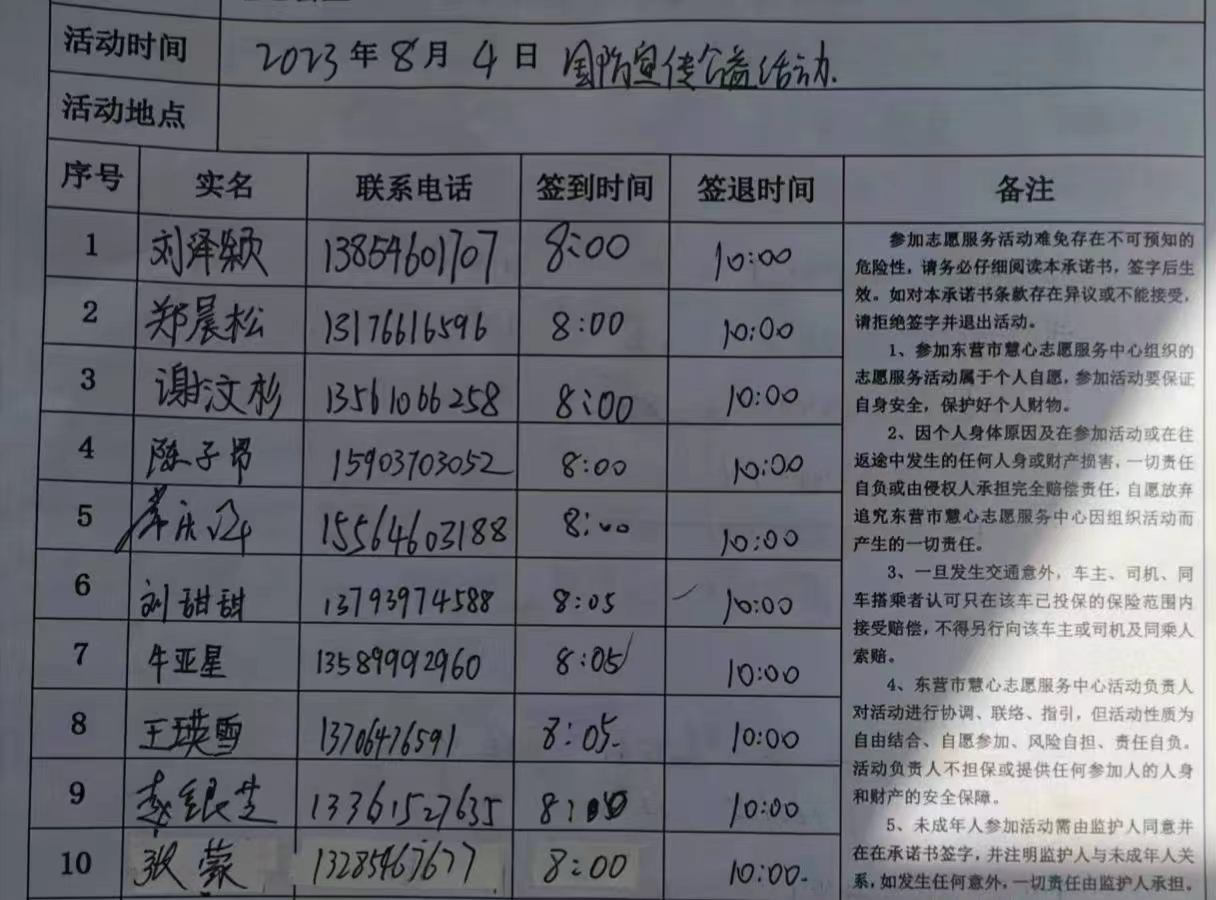 活动时间 2023年8月4日 国防宣传公益活动.
活动地点
序号 实名 联系电话 签到时间 签退时间 备注
1 刘泽颖 13854601707 8:00 10:00
2 郑晨松 13176616596 8:00 10:00
3 谢汶杉 13561066258 8:00 10:00
4 陈子昂 15903703052 8:00 10:00
5 15564603188 8:00 10:00
6 刘甜甜 13793974588 8:05 10:00
7 牛亚星 13589992960 8:05 10:00
8 王瑛雪 13706476591 8:05. 10:00
9 赵银芝 13361527635 8:00 10:00
10 张蒙 13285467677 8:00 10:00.
参加志愿服务活动难免存在不可预知的
危险性，请务必仔细阅读本承诺书，签字后生
效。如对本承诺书条款存在异议或不能接受，
请拒绝签字并退出活动。
1、参加东营市慧心志愿服务中心组织的
志愿服务活动属于个人自愿，参加活动要保证
自身安全，保护好个人财物。
2、因个人身体原因及在参加活动或在往
返途中发生的任何人身或财产损害，一切责任
自负或由侵权人承担完全赔偿责任，自愿放弃
追究东营市慧心志愿服务中心因组织活动而
产生的一切责任。
3、一旦发生交通意外，车主、司机、同
车搭乘者认可只在该车已投保的保险范围内
接受赔偿，不得另行向该车主或司机及同乘人
索赔。
4、东营市慧心志愿服务中心活动负责人
对活动进行协调、联络、指引，但活动性质为
自由结合、自愿参加、风险自担、责任自负。
活动负责人不担保或提供任何参加人的人身
和财产的安全保障。
5、未成年人参加活动需由监护人同意并
在在承诺书签字，并注明监护人与未成年人关
系，如发生任何意外，一切责任由监护人承担。